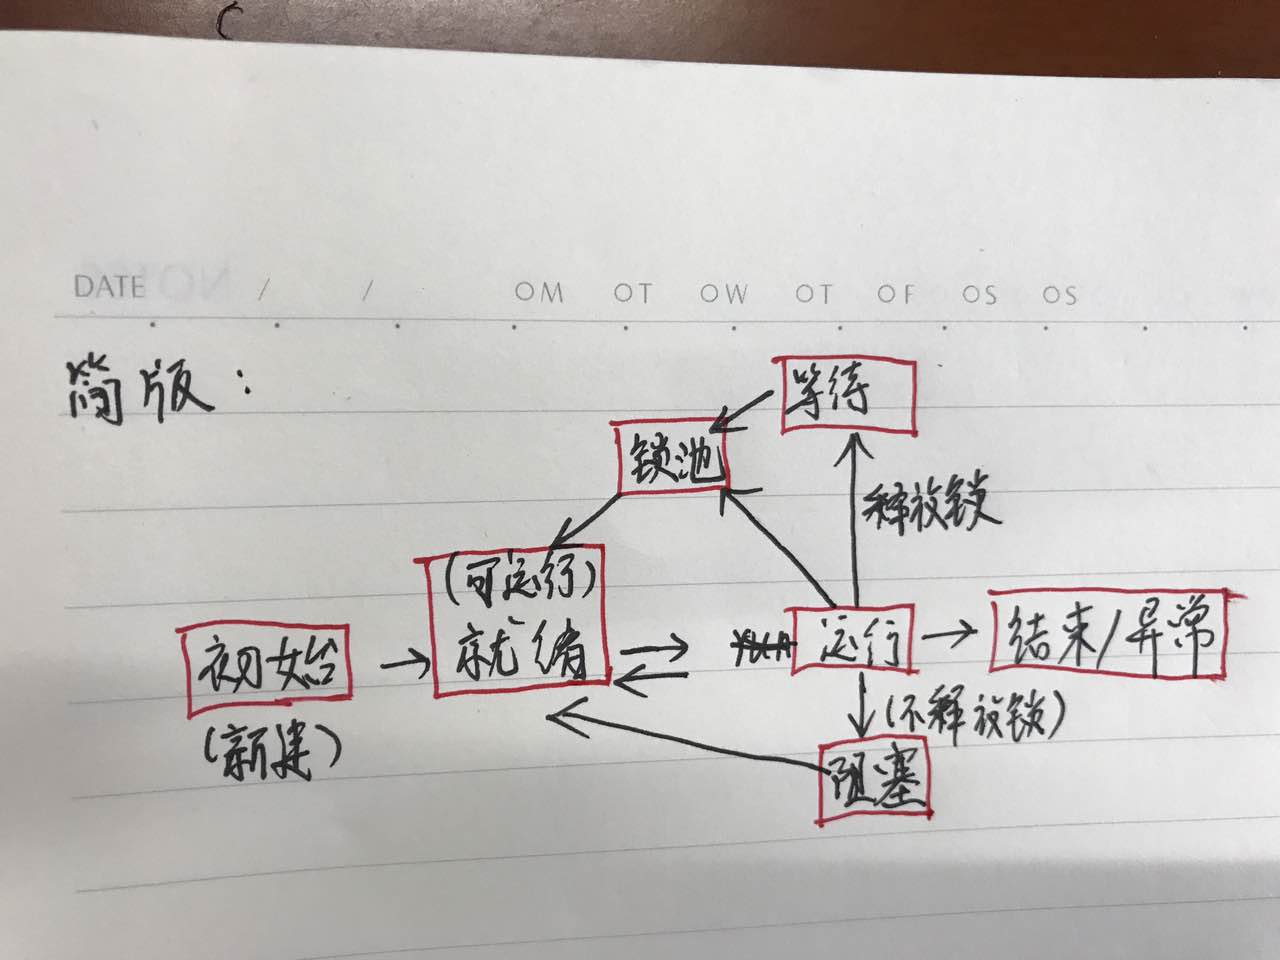 DATE / / OM OT OW OT OF OS OS
简版：
等待
锁池
释放锁
(可运行)
就绪
初始
(新建)
运行
结束/异常
(不释放锁)
阻塞